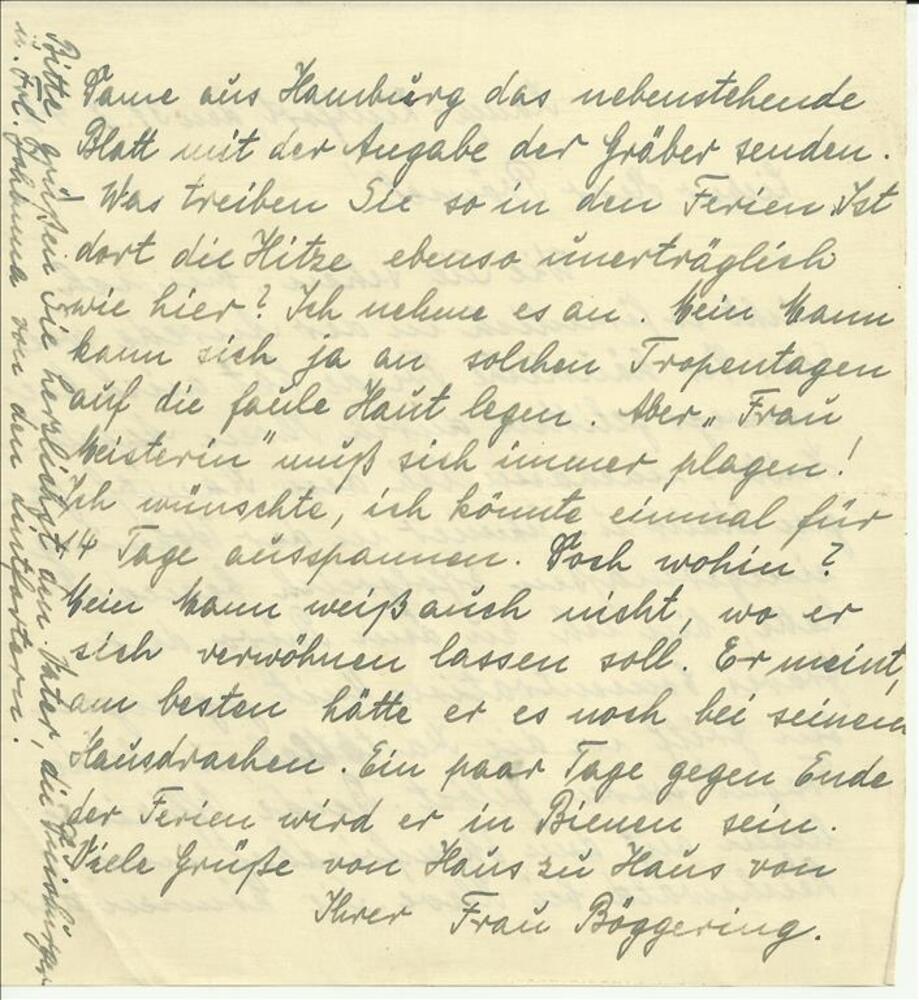 Dame aus Hamburg das nebenstehende
Blatt mit der Angabe der Gräber senden.
Was treiben Sie so in den Ferien Ist
dort die Hitze ebenso unerträglich
wie hier? Ich nehme es an. Mein Mann
kann sich ja an solchen Tropentagen
auf die faule Haut legen. Aber „Frau
Meisterin" muß sich immer plagen!
Ich wünschte, ich könnte einmal für
14 Tage ausspannen. Doch wohin?
Mein Mann weiß auch nicht, wo er
sich verwöhnen lassen soll. Er meint,
am besten hätte er es noch bei seinem
Hausdrachen. Ein paar Tage gegen Ende
der Ferien wird er in Bienen sein.
Viele Grüße von Haus zu Haus von
Ihrer Frau Böggering.
Bitte, grüßen Sie herzlichst den Vater, die
u. Frl. Johanna von den Lintfortern.